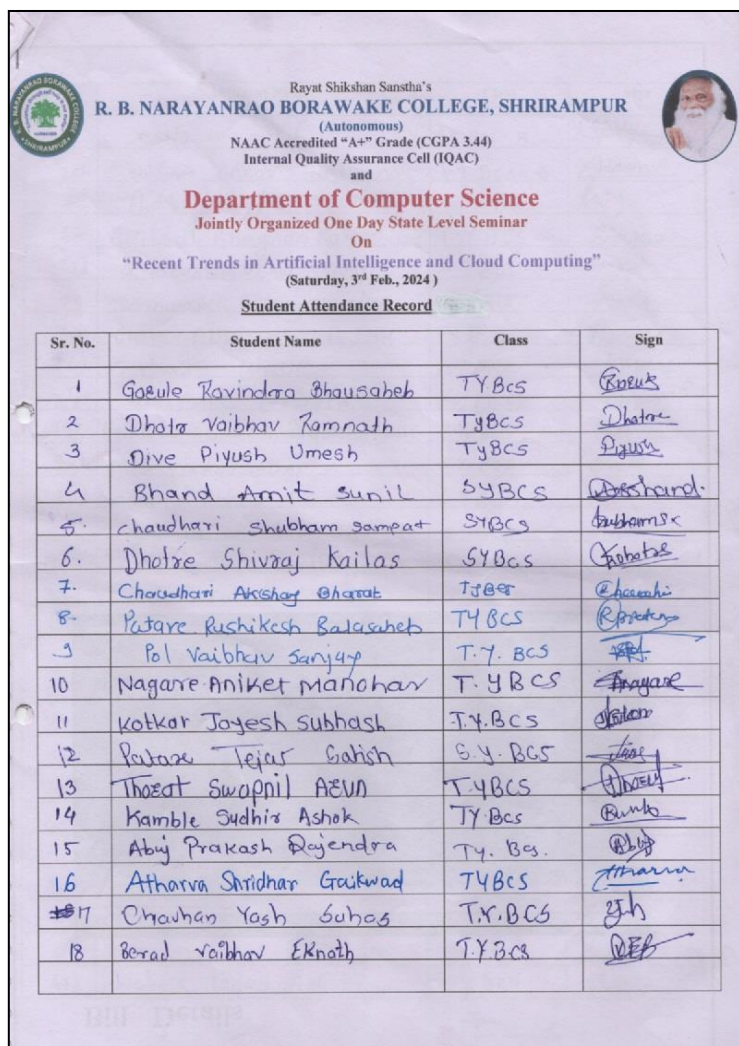 R. B. NARAYANRAO BORAWAKE COLLEGE
SHRIRAMPUR
Rayat Shikshan Sanstha's
R. B. NARAYANRAO BORAWAKE COLLEGE, SHRIRAMPUR
(Autonomous)
NAAC Accredited "A+" Grade (CGPA 3.44)
Internal Quality Assurance Cell (IQAC)
and
Department of Computer Science
Jointly Organized One Day State Level Seminar
On
"Recent Trends in Artificial Intelligence and Cloud Computing"
(Saturday, 3rd Feb., 2024 )
Student Attendance Record
Sr. No. Student Name Class Sign
1 Ravindra Bhausaheb TYBCS
2 Dhotr Vaibhav Ramnath TyBCS Dhotre
3 Dive Piyush Umesh TyBCS Piyush
4 Bhand Amit Sunil SYBCS
5. Chaudhari Shubham Sampat SYBCS
6. Dhotre Shivraj Kailas SYBCS
7. Chaudhari Akshay Bharat
8. Patare Rushikesh Balasaheb TYBCS
9 Pol Vaibhav Sanjay T.Y. BCS
10 Nagare Aniket Manohar T.YBCS
11 Kotkar Jayesh Subhash T.Y.BCS
12 Patare Tejas Satish S.Y. BCS
13 Thorat Swappnil T.YBCS
14 Kamble Sudhir Ashok TY BCS
15 Abuj Prakash Rajendra Ty. Bcs. Abuj
16 Atharva Shridhar Gaikwad TYBCS Atharva
17 Chavhan Yash Suhas T.Y.BCS
18 Berad Vaibhav Eknath T.Y.BCS